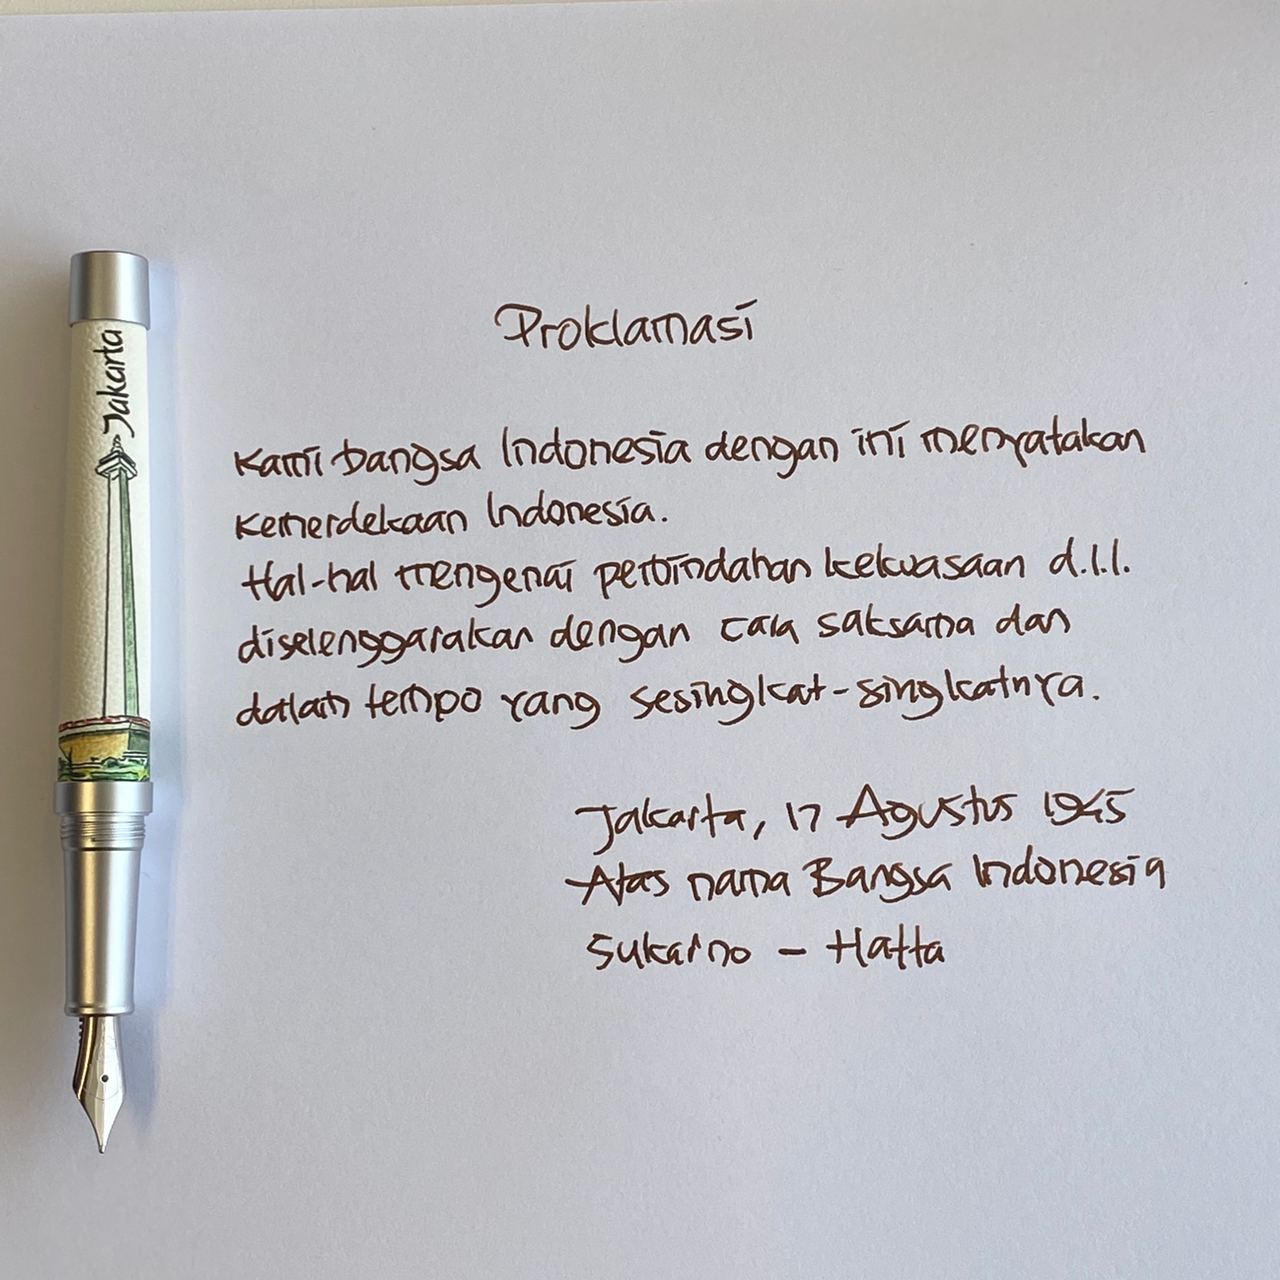 Jakarta
Proklamasi
Kami bangsa Indonesia dengan ini menyatakan
kemerdekaan Indonesia.
Hal-hal mengenai perbindahan kekuasaan d.l.l.
diselenggarakan dengan cara saksama dan
dalam tempo yang sesingkat-singkatnya.
Jakarta, 17 Agustus 1945
Atas nama Bangsa Indonesia
Sukarno - Hatta